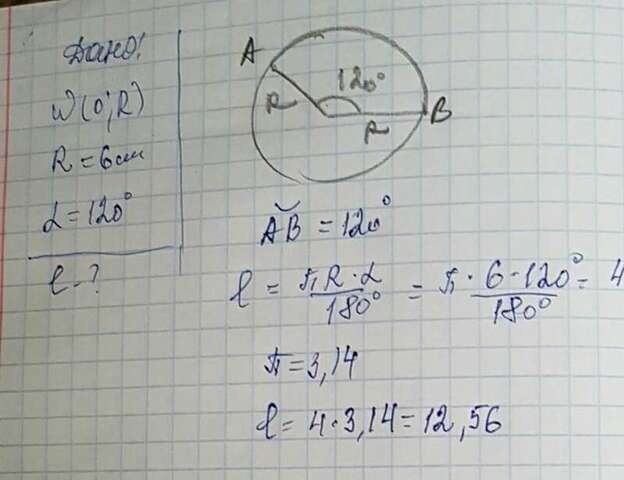 Дано:
W(O;R)
R = 6см
α = 120°
l - ?
A
120°
R
R
B
AB = 120°
l = πR·α/180° = π·6·120°/180° = 4
π = 3,14
l = 4·3,14 = 12,56